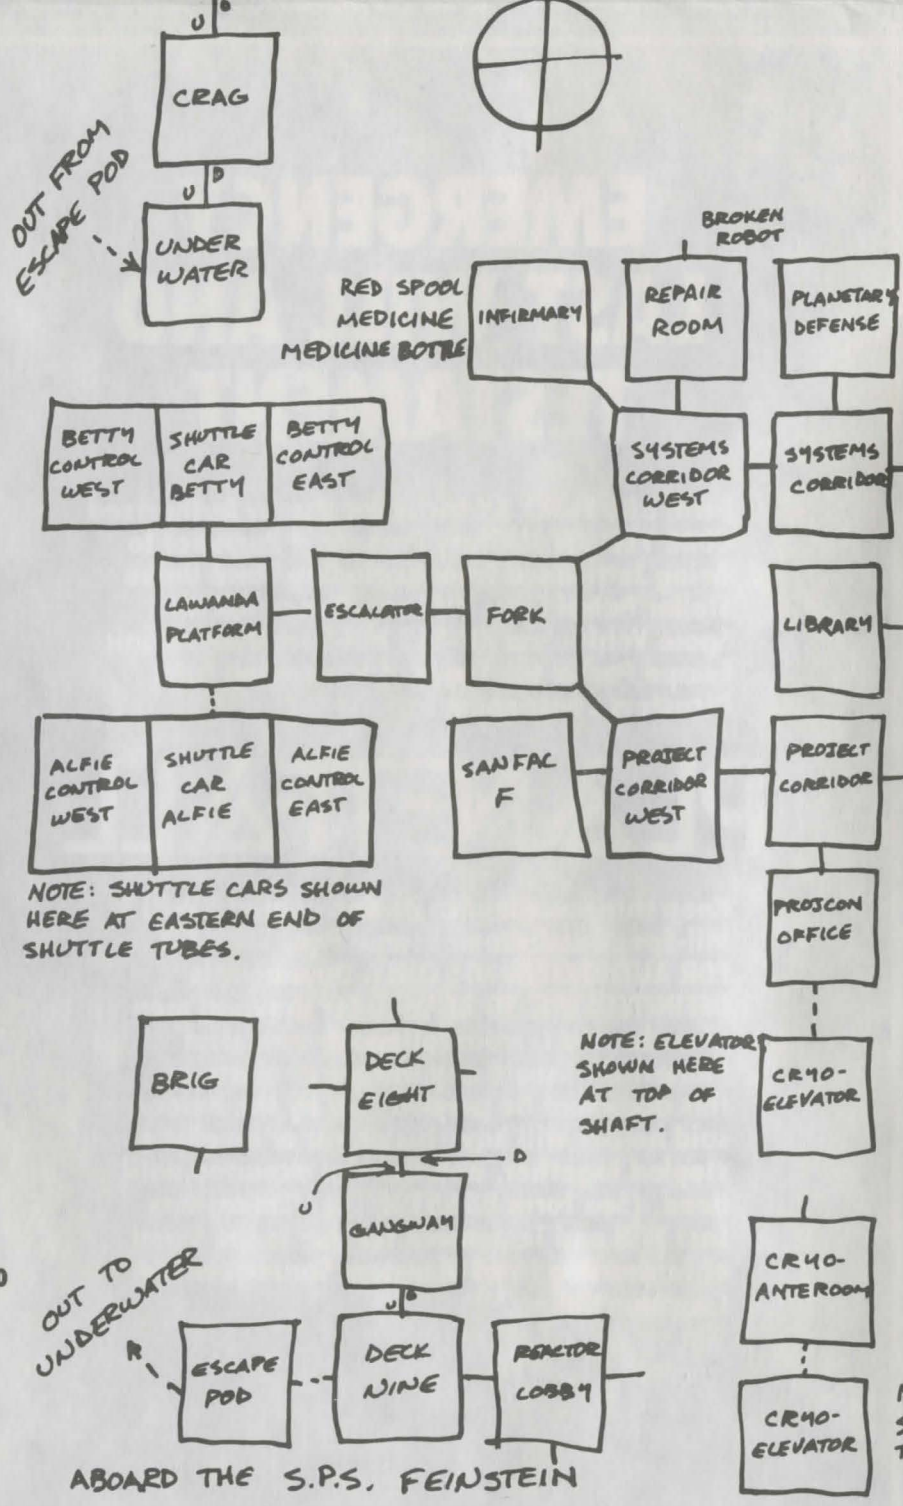 U D
CRAG
U D
OUT FROM
ESCAPE POD
UNDER
WATER
BROKEN
ROBOT
RED SPOOL
MEDICINE
MEDICINE BOTTLE
INFIRMARY
REPAIR
ROOM
PLANETARY
DEFENSE
BETTY
CONTROL
WEST
SHUTTLE
CAR
BETTY
BETTY
CONTROL
EAST
SYSTEMS
CORRIDOR
WEST
SYSTEMS
CORRIDOR
LAWANDA
PLATFORM
ESCALATOR
FORK
LIBRARY
ALFIE
CONTROL
WEST
SHUTTLE
CAR
ALFIE
ALFIE
CONTROL
EAST
SANFAC
F
PROJECT
CORRIDOR
WEST
PROJECT
CORRIDOR
NOTE: SHUTTLE CARS SHOWN
HERE AT EASTERN END OF
SHUTTLE TUBES.
PROJCON
OFFICE
BRIG
DECK
EIGHT
NOTE: ELEVATOR
SHOWN HERE
AT TOP OF
SHAFT.
CRYO-
ELEVATOR
D
U
GANGWAY
U D
OUT TO
UNDERWATER
CRYO-
ANTEROOM
ESCAPE
POD
DECK
NINE
REACTOR
LOBBY
CRYO-
ELEVATOR
ABOARD THE S.P.S. FEINSTEIN